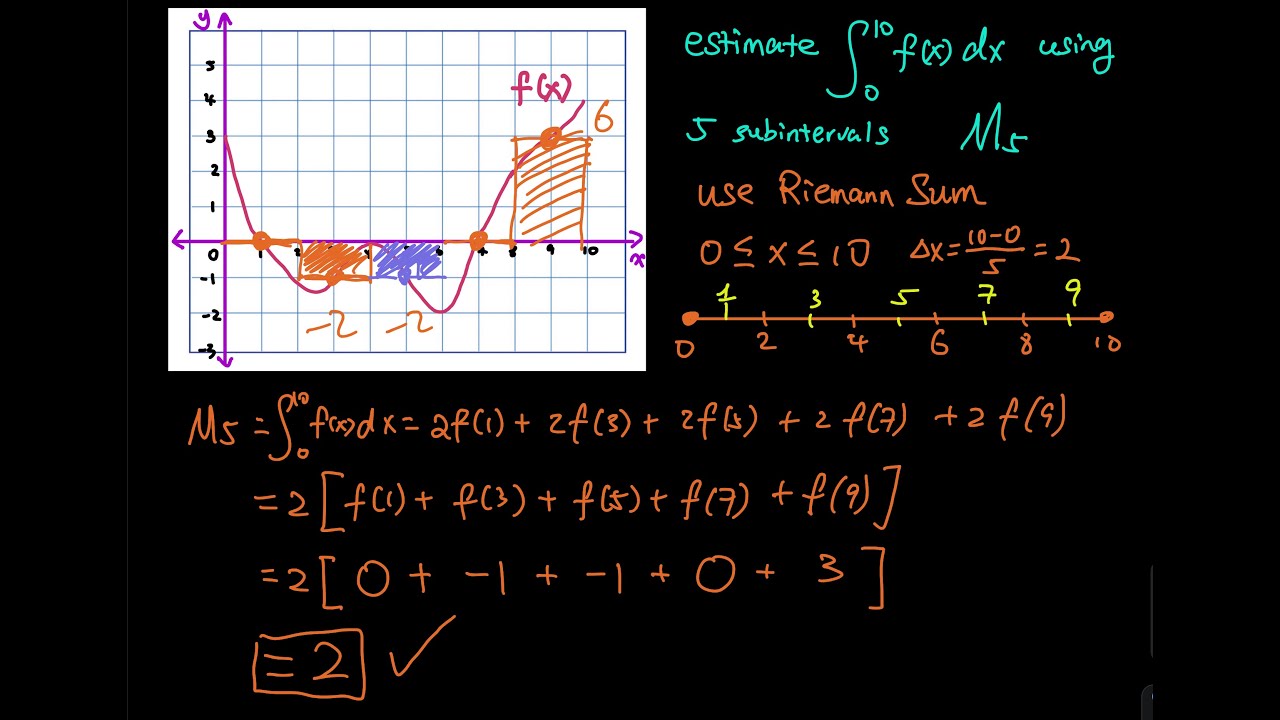 y
5
4
3
2
1
0
-1
-2
-3
1 2 3 4 5 6 7 8 9 10
x
f(x)
6
-2 -2
estimate ∫₀¹⁰ f(x) dx using
5 subintervals M₅
use Riemann Sum
0 ≤ x ≤ 10 Δx = (10-0)/5 = 2
1 3 5 7 9
0 2 4 6 8 10
M₅ = ∫₀¹⁰ f(x) dx = 2f(1) + 2f(3) + 2f(5) + 2f(7) + 2f(9)
= 2[f(1) + f(3) + f(5) + f(7) + f(9)]
= 2[0 + -1 + -1 + 0 + 3]
= 2 ✓